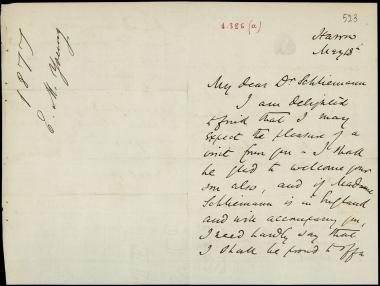 1877
E. M. Young
1.386 (a)
523
Harrow
May 18th
My dear Dr. Schliemann
I am delighted
to find that I may
expect the pleasure of a
visit from you - I shall
be glad to welcome your
son also, and if Madame
Schliemann is in England
and will accompany you,
I need hardly say that
I shall be proud to offer